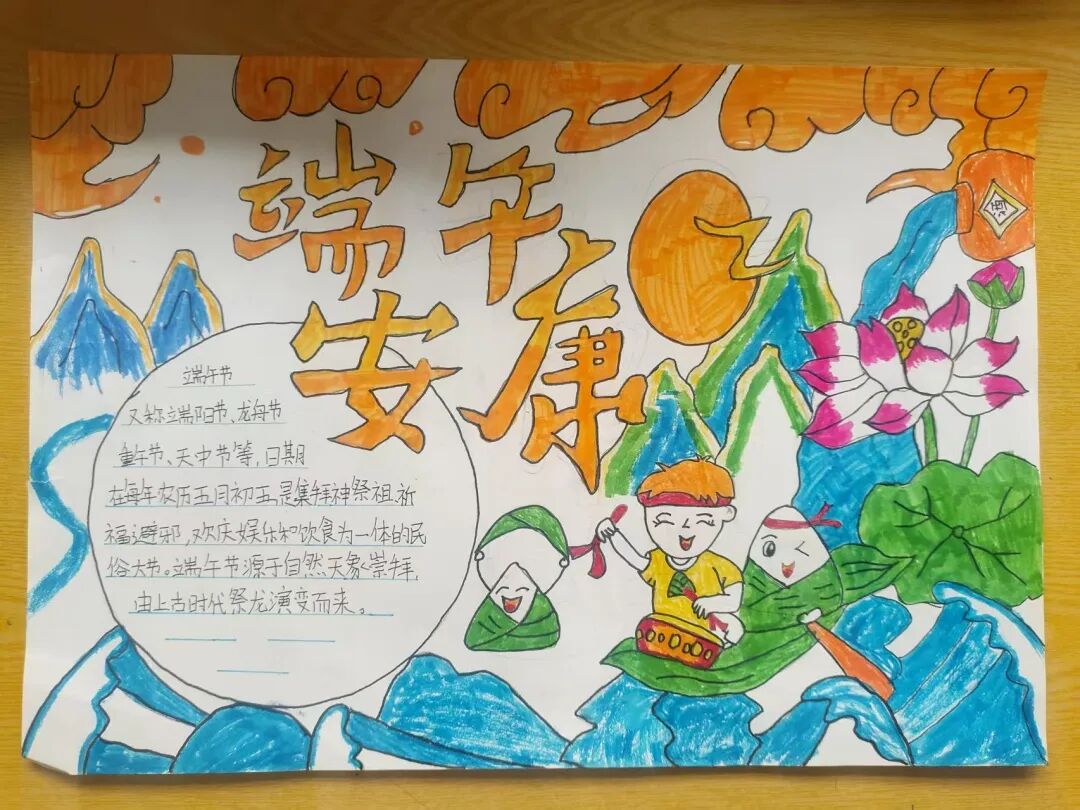 端午
安康
端午节
又称端阳节、龙舟节
重午节、天中节等，日期
在每年农历五月初五，是集拜神祭祖、祈
福辟邪、欢庆娱乐和饮食为一体的民
俗大节。端午节源于自然天象崇拜，
由上古时代祭龙演变而来。